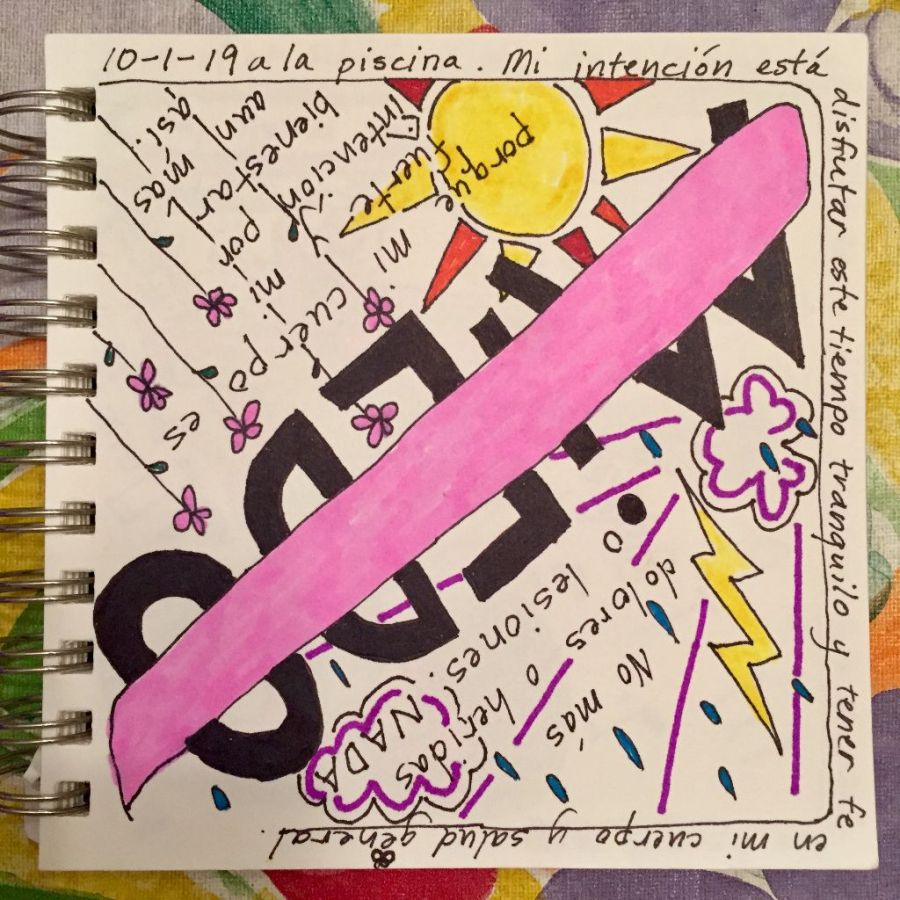 10-1-19 a la piscina. Mi intención está
disfrutar este tiempo tranquilo y tener fe
en mi cuerpo y salud general.
MIEDO
porque mi cuerpo es
fuerte
intención y
bienestar por mi.
aun más
así.
No más
dolores o heridas
o lesiones.
NADA